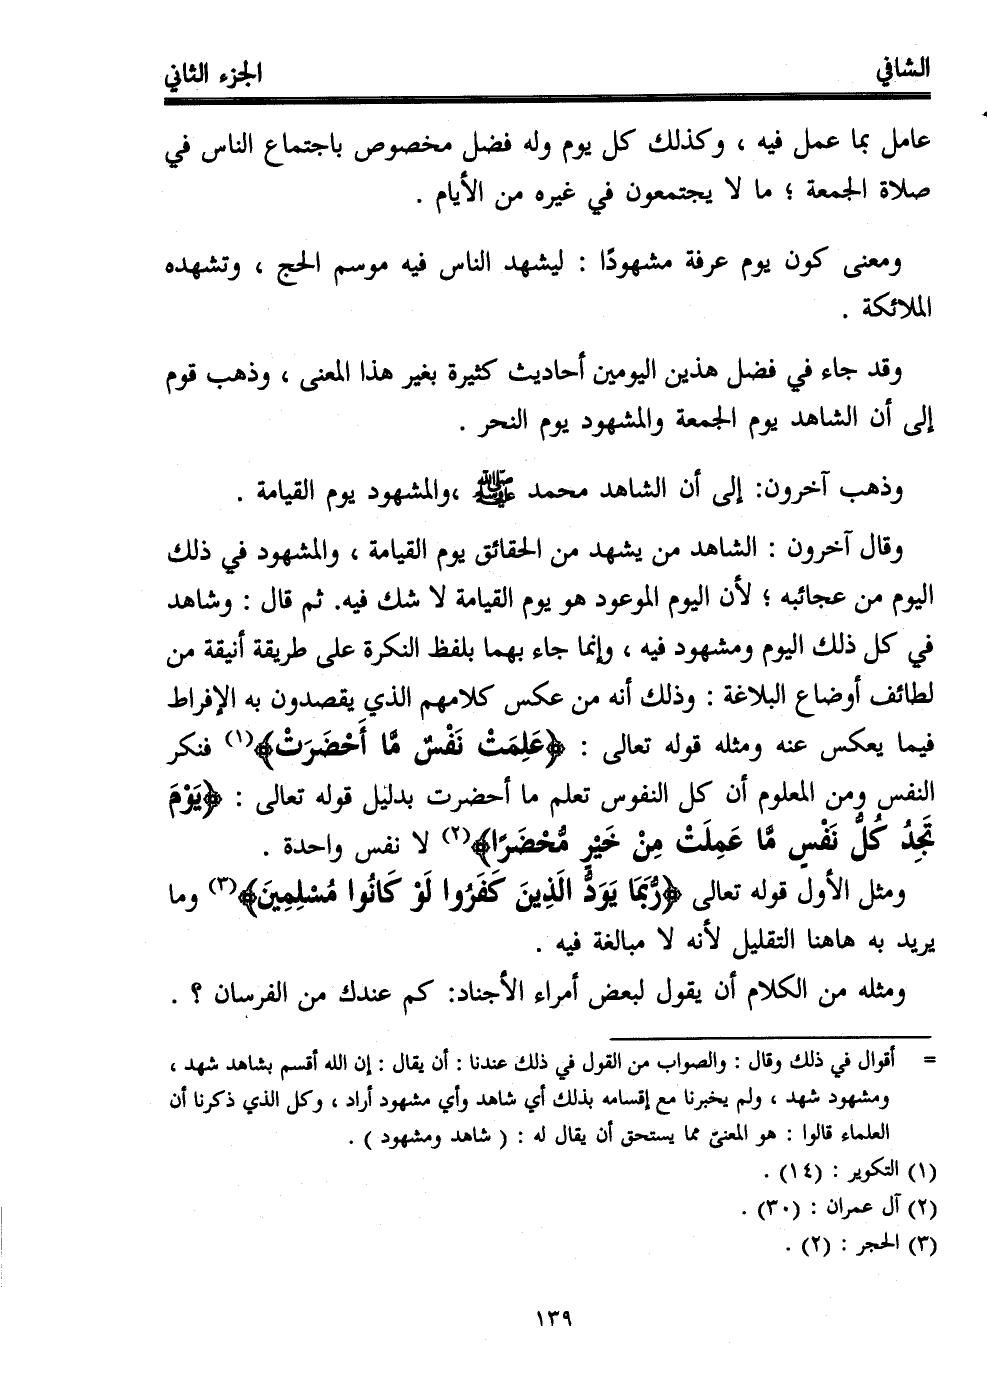 الشافي
الجزء الثاني
عامل بما عمل فيه ، وكذلك كل يوم وله فضل مخصوص باجتماع الناس في
صلاة الجمعة ؛ ما لا يجتمعون في غيره من الأيام .
ومعنى كون يوم عرفة مشهودًا : ليشهد الناس فيه موسم الحج ، وتشهده
الملائكة .
وقد جاء في فضل هذين اليومين أحاديث كثيرة بغير هذا المعنى ، وذهب قوم
إلى أن الشاهد يوم الجمعة والمشهود يوم النحر .
وذهب آخرون: إلى أن الشاهد محمد ﷺ ،والمشهود يوم القيامة .
وقال آخرون : الشاهد من يشهد من الحقائق يوم القيامة ، والمشهود في ذلك
اليوم من عجائبه ؛ لأن اليوم الموعود هو يوم القيامة لا شك فيه. ثم قال : وشاهد
في كل ذلك اليوم ومشهود فيه ، وإنما جاء بهما بلفظ النكرة على طريقة أنيقة من
لطائف أوضاع البلاغة : وذلك أنه من عكس كلامهم الذي يقصدون به الإفراط
فيما يعكس عنه ومثله قوله تعالى : ﴿عَلِمَتْ نَفْسٌ مَّا أَحْضَرَتْ﴾(١) فنكر
النفس ومن المعلوم أن كل النفوس تعلم ما أحضرت بدليل قوله تعالى : ﴿يَوْمَ
تَجِدُ كُلُّ نَفْسٍ مَّا عَمِلَتْ مِنْ خَيْرٍ مُّحْضَرًا﴾(٢) لا نفس واحدة .
ومثل الأول قوله تعالى ﴿رُّبَمَا يَوَدُّ الَّذِينَ كَفَرُوا لَوْ كَانُوا مُسْلِمِينَ﴾(٣) وما
يريد به هاهنا التقليل لأنه لا مبالغة فيه .
ومثله من الكلام أن يقول لبعض أمراء الأجناد: كم عندك من الفرسان ؟ .
= أقوال في ذلك وقال : والصواب من القول في ذلك عندنا : أن يقال : إن الله أقسم بشاهد شهد ،
ومشهود شهد ، ولم يخبرنا مع إقسامه بذلك أي شاهد وأي مشهود أراد ، وكل الذي ذكرنا أن
العلماء قالوا : هو المعنيّ مما يستحق أن يقال له : ( شاهد ومشهود ) .
(١) التكوير : (١٤) .
(٢) آل عمران : (٣٠) .
(٣) الحجر : (٢) .
١٣٩